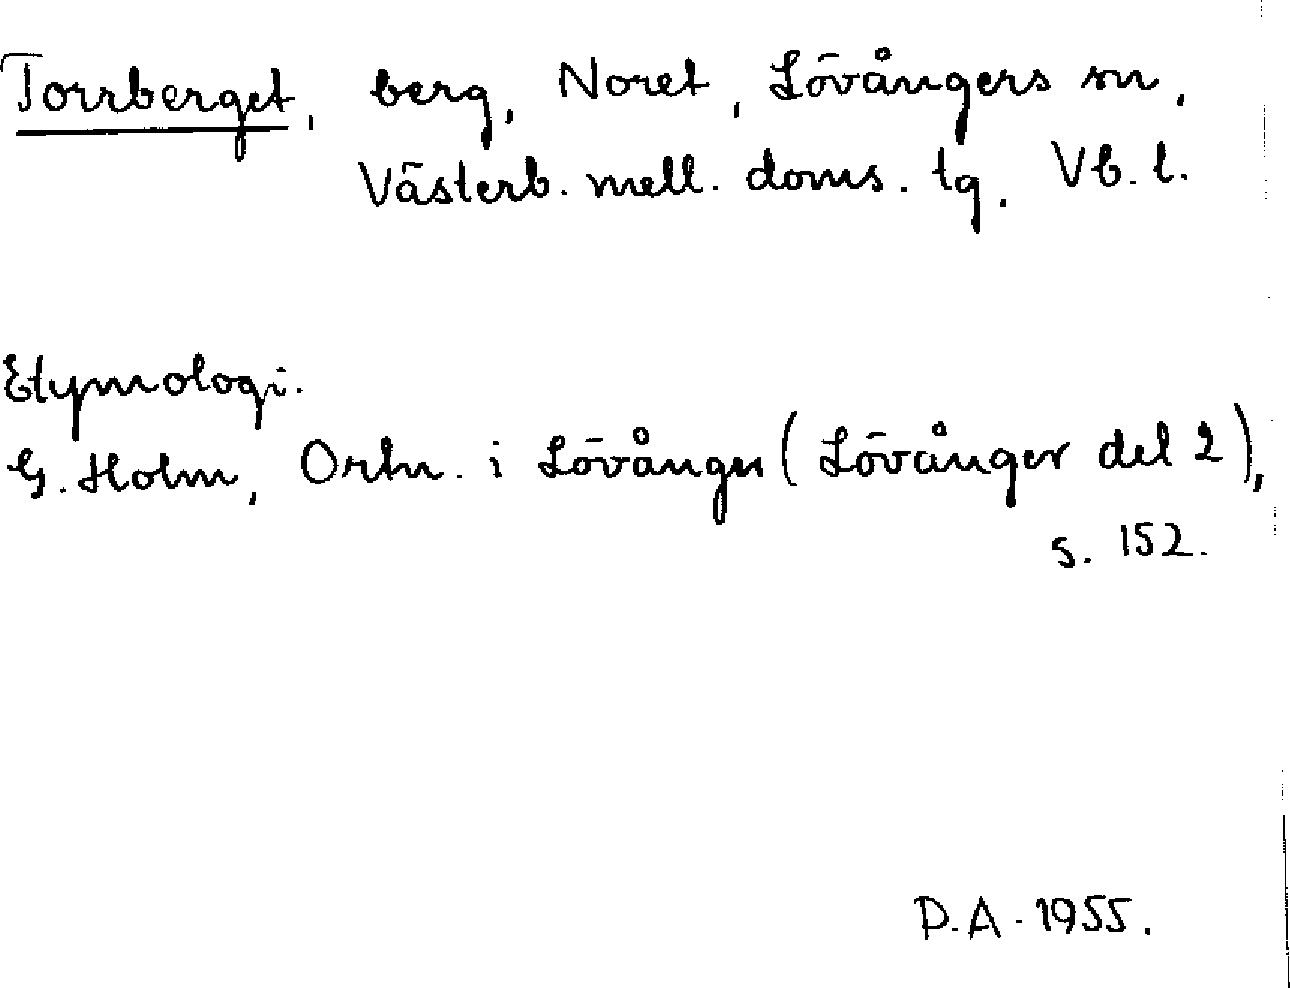 Torrberget, berg, Noret, Lövångers sn,
Västerb. mell. doms. tg. Vb. l.
Etymologi.
G. Holm, Ortn. i Lövånger (Lövånger del 2),
s. 152.
D.A. 1955.